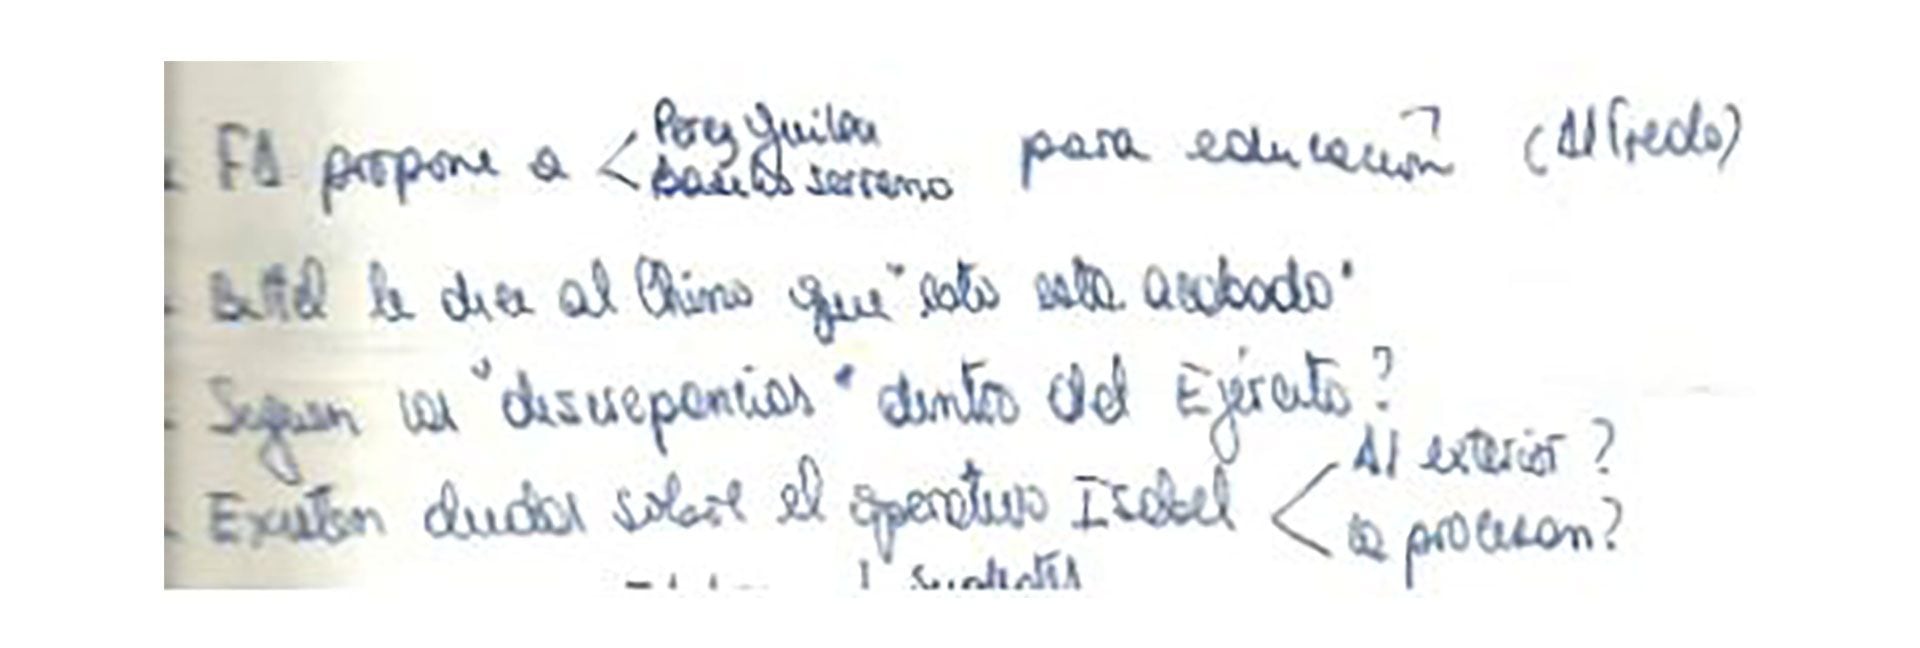 - FA propone a < Perez Guilou
Basilio Serrano para educación (Alfredo)
- Bittel le dice al Chino que "esto está acabado"
- Siguen las "discrepancias" dentro del Ejército?
- Existen dudas sobre el operativo Isabel < Al exterior?
la procesan?